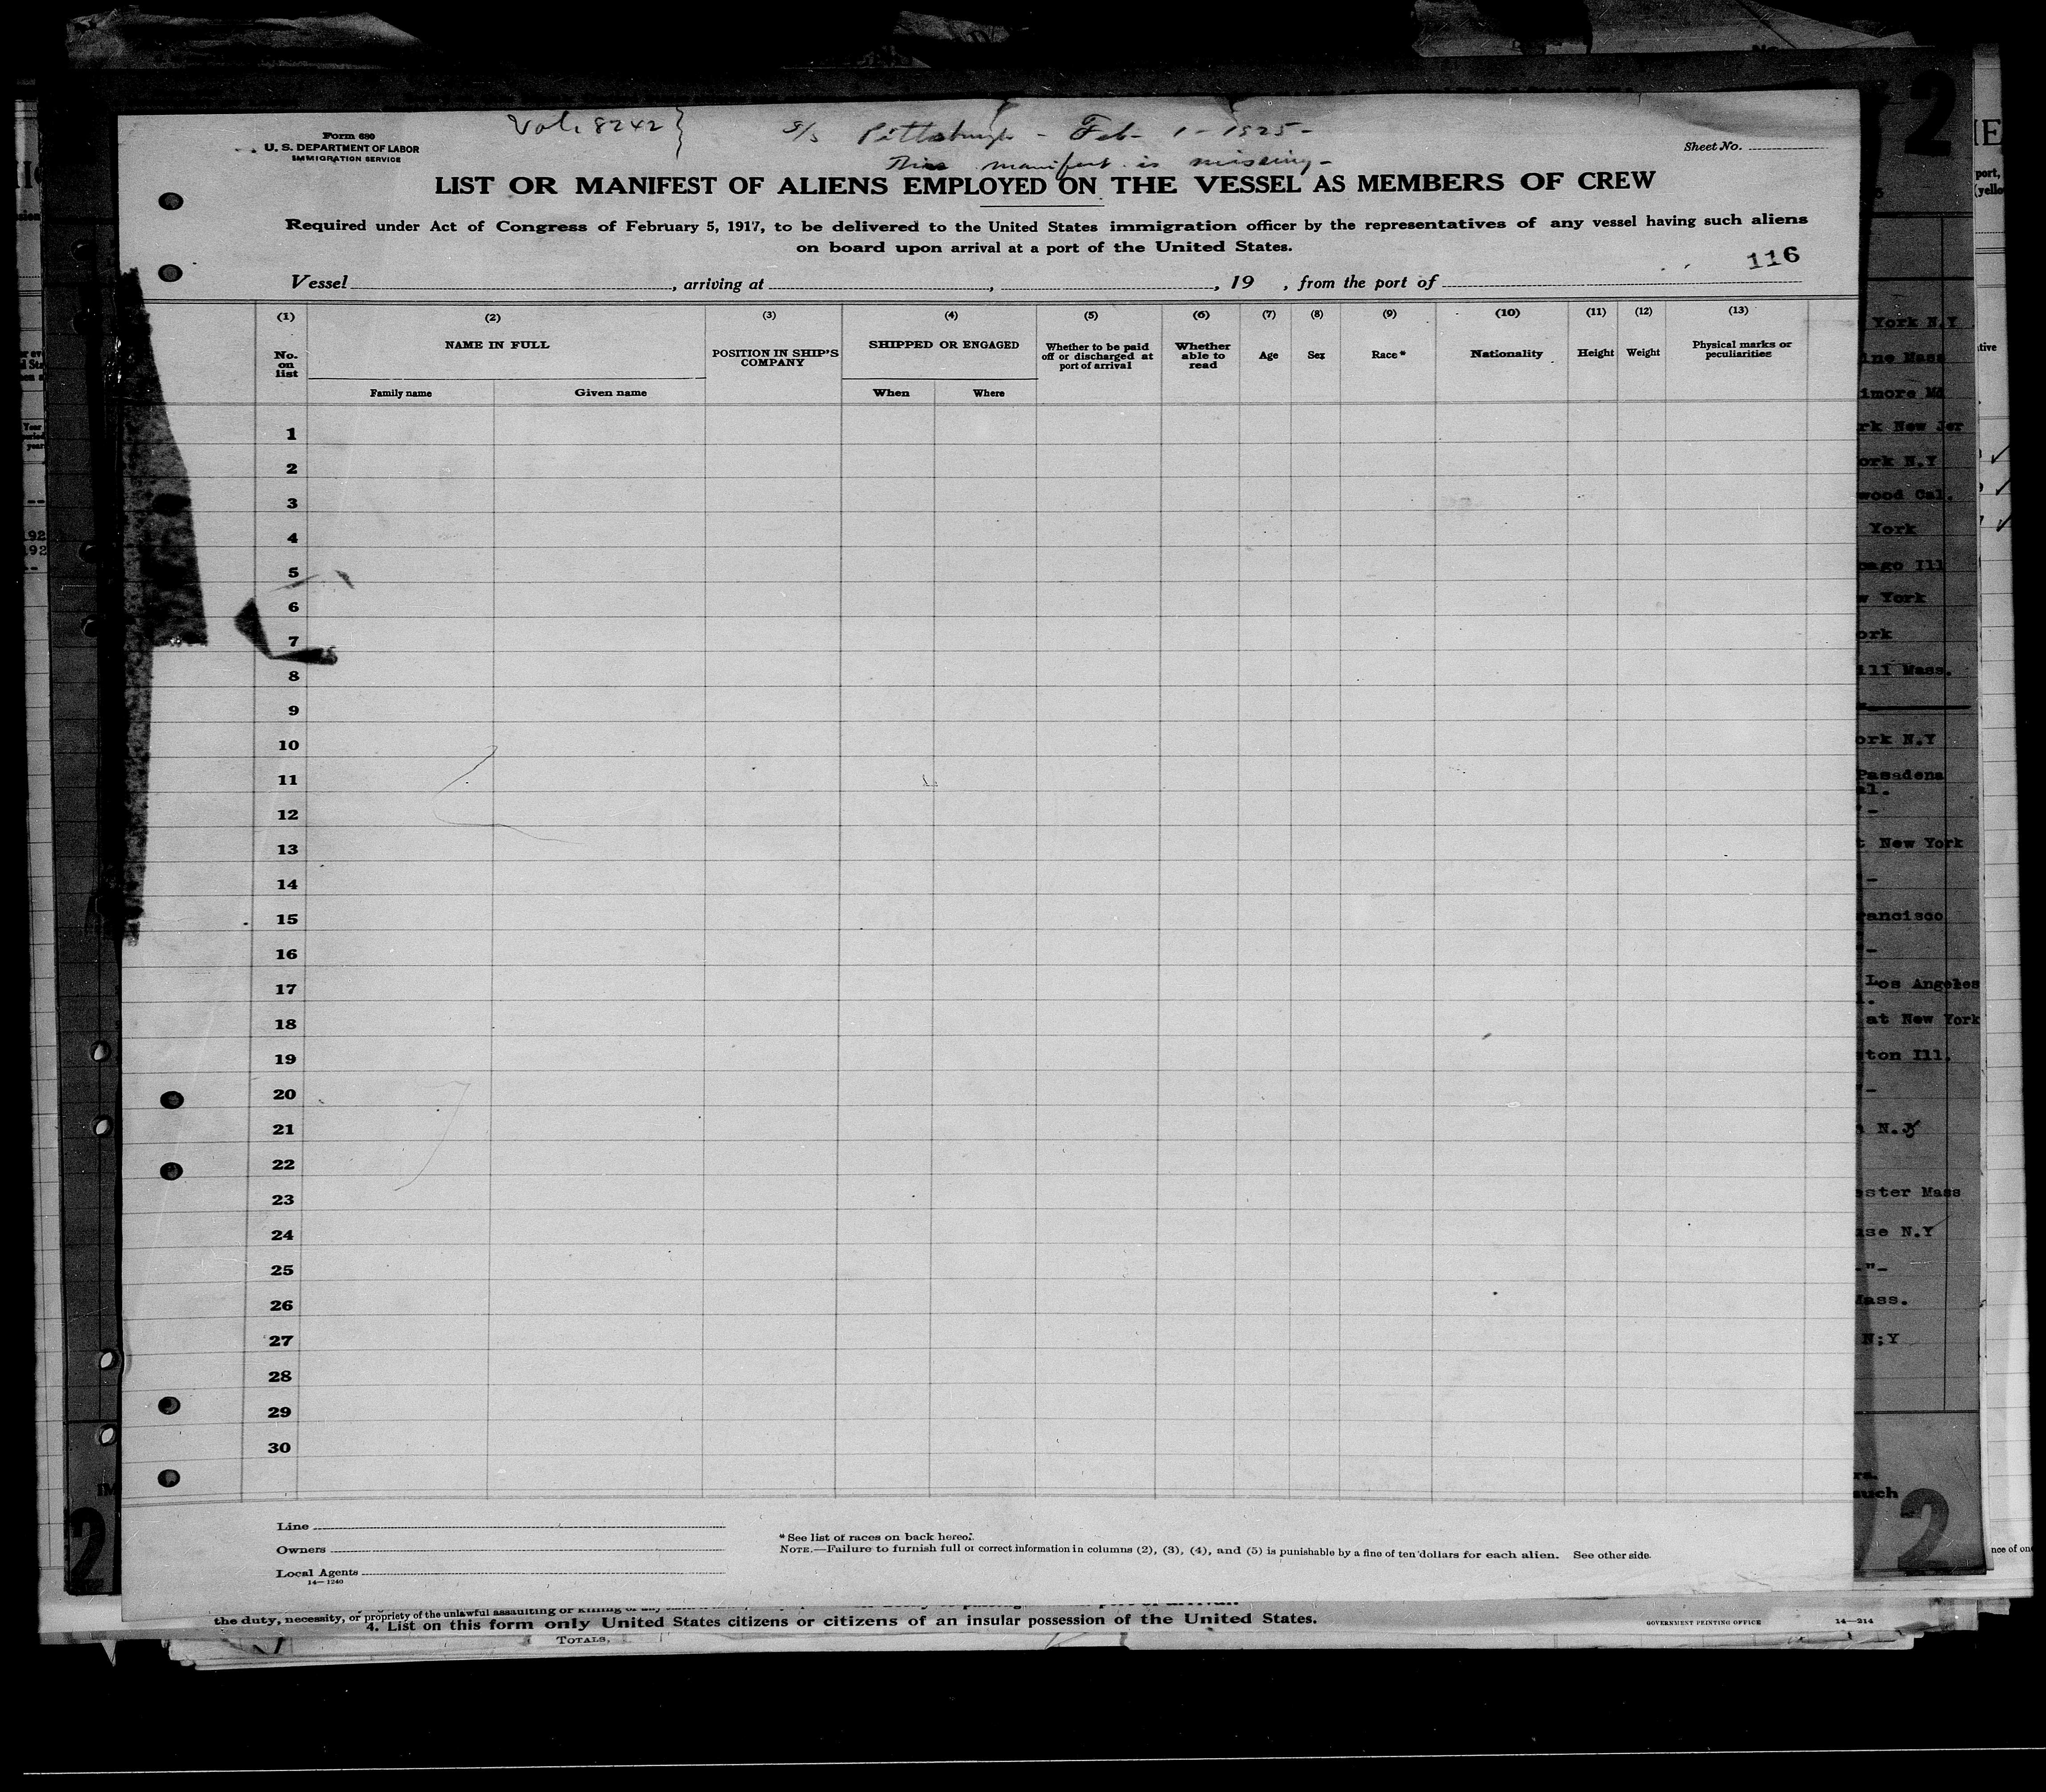 Vol. 8242 } S/s Pittsburgh - Feb - 1 - 1925 -
This manifest is missing -
Form 680
U. S. DEPARTMENT OF LABOR
IMMIGRATION SERVICE
Sheet No.
LIST OR MANIFEST OF ALIENS EMPLOYED ON THE VESSEL AS MEMBERS OF CREW
Required under Act of Congress of February 5, 1917, to be delivered to the United States immigration officer by the representatives of any vessel having such aliens
on board upon arrival at a port of the United States.
116
Vessel , arriving at , , 19 , from the port of
(1) (2) (3) (4) (5) (6) (7) (8) (9) (10) (11) (12) (13)
No. on list NAME IN FULL POSITION IN SHIP'S COMPANY SHIPPED OR ENGAGED Whether to be paid off or discharged at port of arrival Whether able to read Age Sex Race* Nationality Height Weight Physical marks or peculiarities
Family name Given name When Where
1
2
3
4
5
6
7
8
9
10
11
12
13
14
15
16
17
18
19
20
21
22
23
24
25
26
27
28
29
30
Line
Owners
Local Agents
14—1240
*See list of races on back hereof.
NOTE.—Failure to furnish full or correct information in columns (2), (3), (4), and (5) is punishable by a fine of ten dollars for each alien. See other side.
the duty, necessity, or propriety of the unlawful assaulting or killing of any
4. List on this form only United States citizens or citizens of an insular possession of the United States.
GOVERNMENT PRINTING OFFICE 14—214
TOTALS,
2
York N.Y
Mass
Md
New Jer
N.Y
Cal.
York
Ill
York
Mass.
N.Y
Pasadena
New York
Los Angeles
at New York
Ill.
Mass
N.Y
-"-
Mass.
N;Y
such
2
2